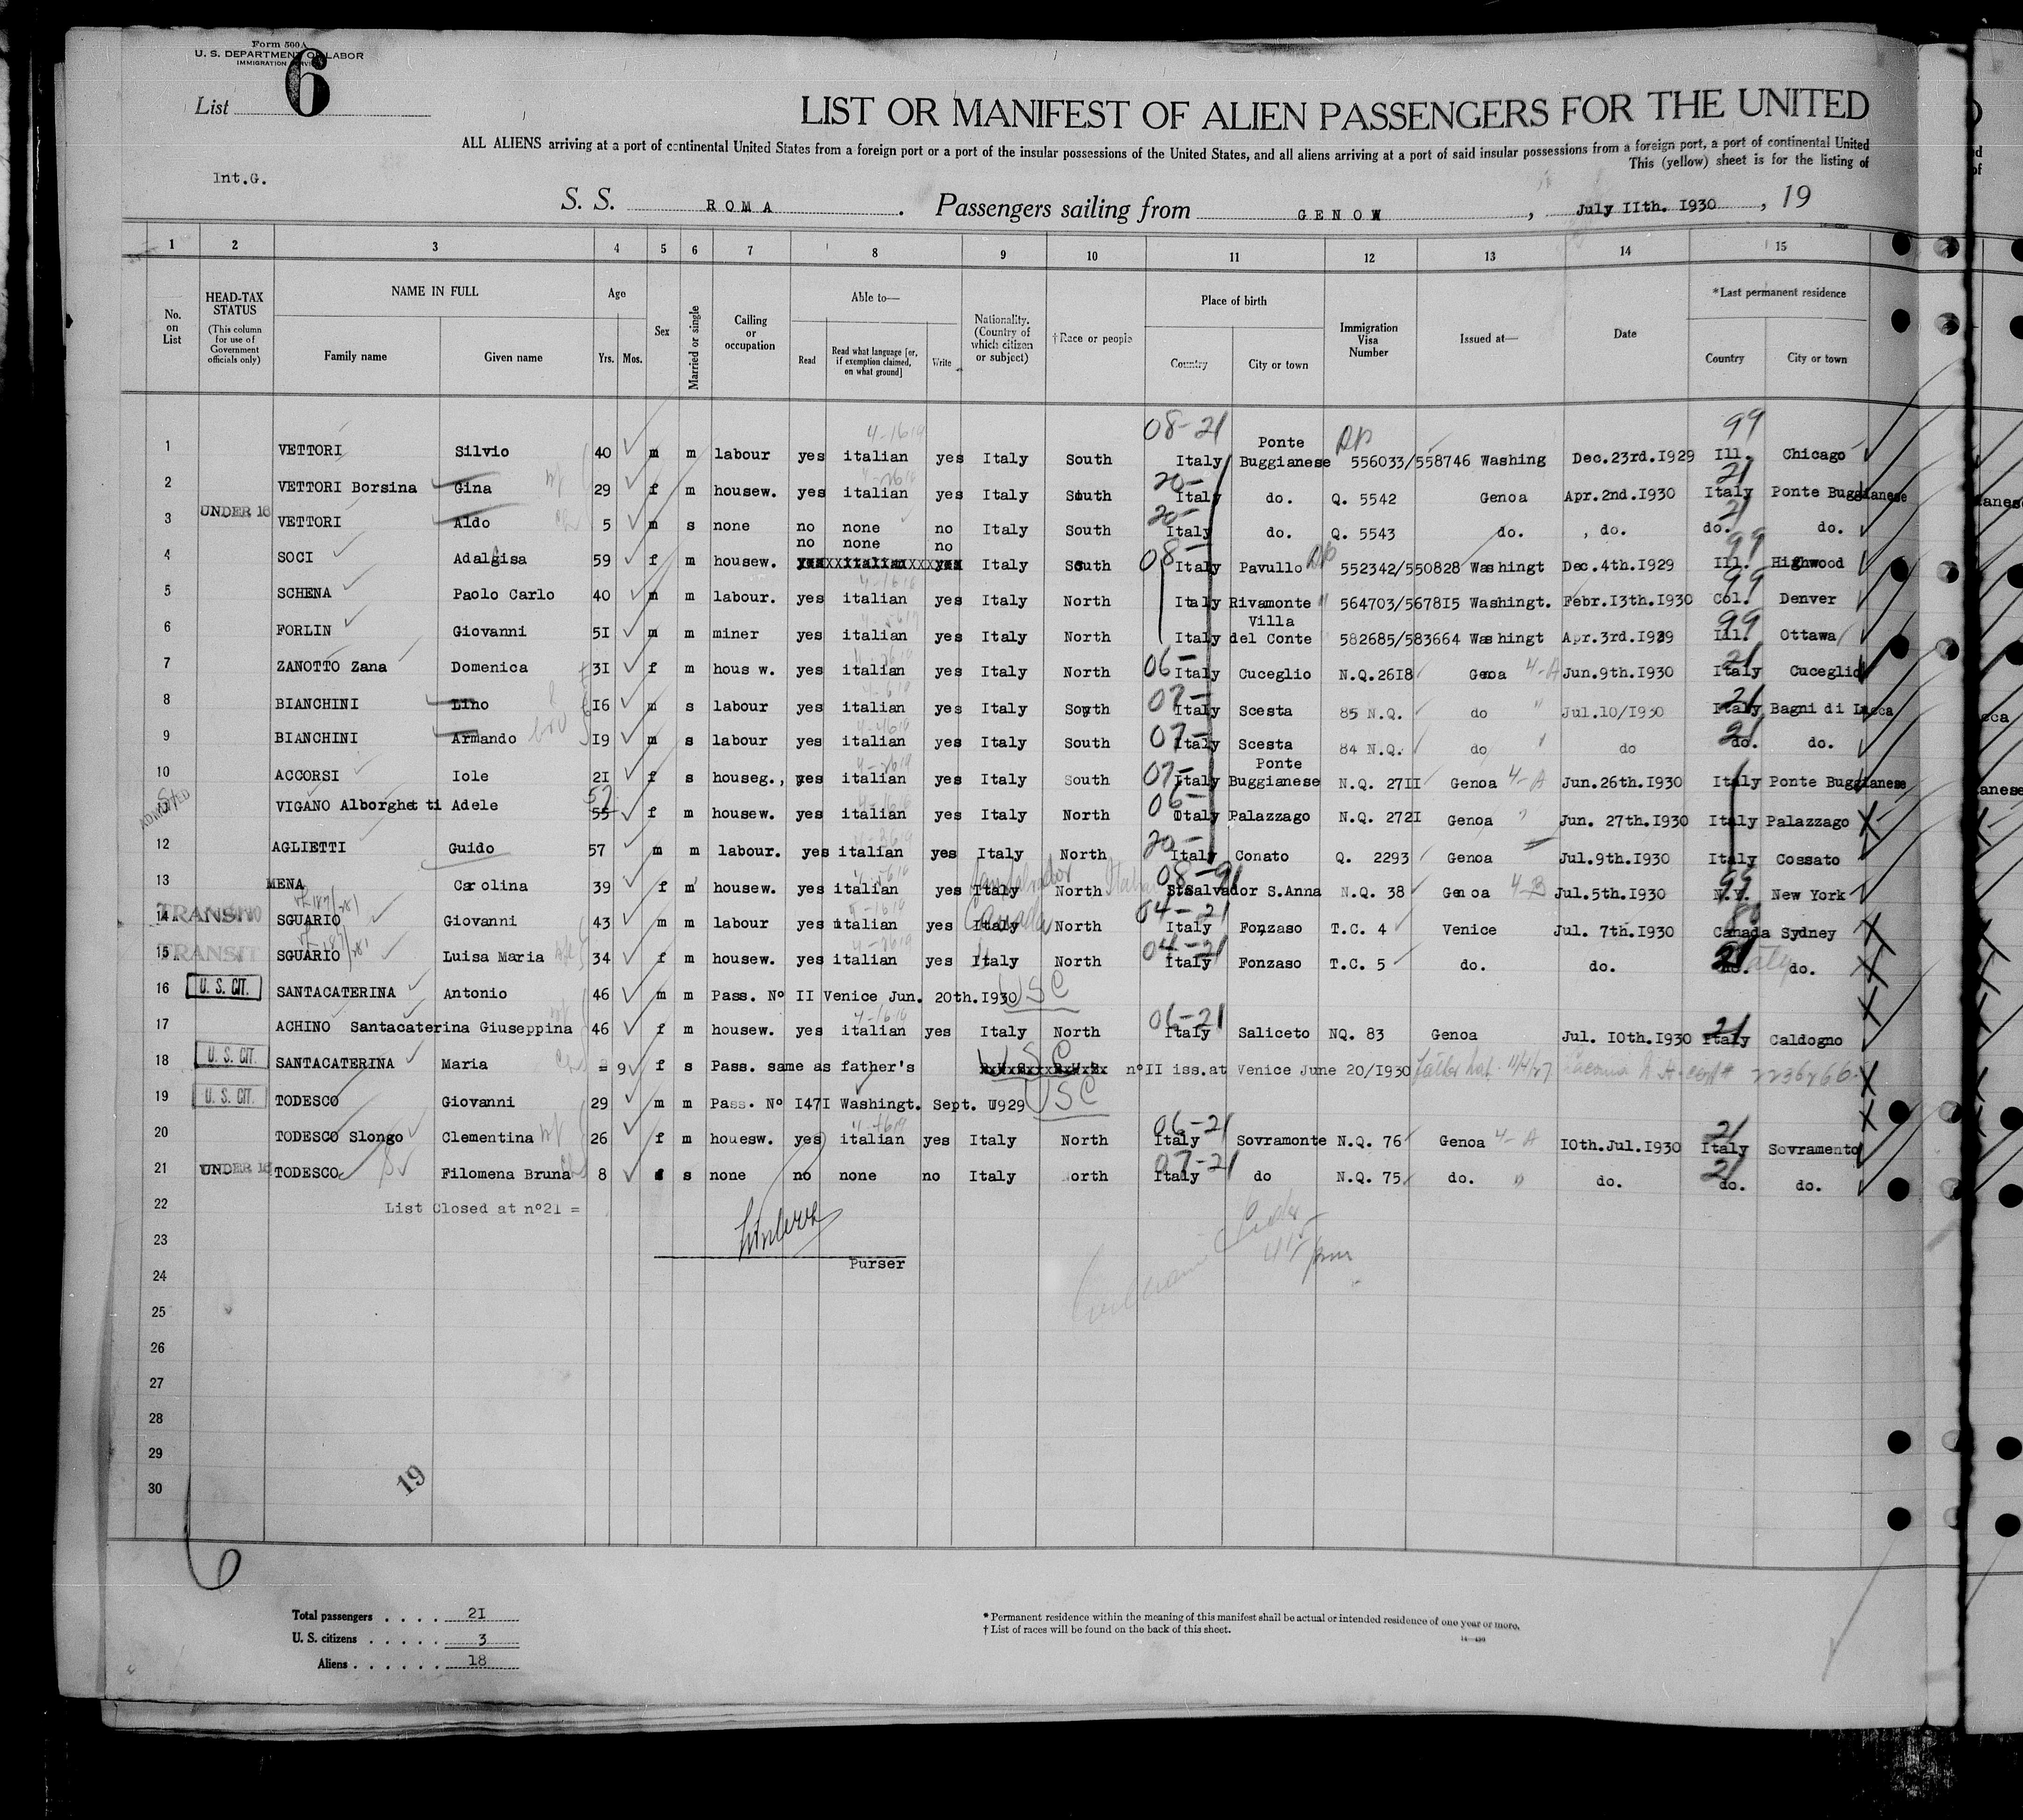 Form 500A
U. S. DEPARTMENT OF LABOR
IMMIGRATION SERVICE
List 6
LIST OR MANIFEST OF ALIEN PASSENGERS FOR THE UNITED
ALL ALIENS arriving at a port of continental United States from a foreign port or a port of the insular possessions of the United States, and all aliens arriving at a port of said insular possessions from a foreign port, a port of continental United
This (yellow) sheet is for the listing of
Int.G.
S. S. ROMA . Passengers sailing from GENOW , July IIth. I930 , 19
1 2 3 4 5 6 7 8 9 10 11 12 13 14 15
No. on List
HEAD-TAX STATUS (This column for use of Government officials only)
NAME IN FULL
Family name Given name
Age
Yrs. Mos.
Sex
Married or single
Calling or occupation
Able to—
Read
Read what language [or, if exemption claimed, on what ground]
Write
Nationality. (Country of which citizen or subject)
†Race or people
Place of birth
Country City or town
Immigration Visa Number
Issued at—
Date
*Last permanent residence
Country City or town
08-21 Ponte AP 99
1 VETTORI Silvio 40 m m labour yes italian yes Italy South Italy Buggianese 556033/558746 Washing Dec.23rd.I929 Ill. Chicago
20- 21
2 VETTORI Borsina Gina 29 f m housew. yes italian yes Italy South Italy do. Q. 5542 Genoa Apr.2nd.I930 Italy Ponte Buggianese
UNDER 16
20- 21
3 VETTORI Aldo 5 m s none no none no Italy South Italy do. Q. 5543 do. do. do. do.
no none no
08- 99
4 SOCI Adalgisa 59 f m housew. yesxxitalianxxxxyes Italy South Italy Pavullo 552342/550828 Washingt Dec.4th.I929 Ill. Highwood
99
5 SCHENA Paolo Carlo 40 m m labour. yes italian yes Italy North Italy Rivamonte 564703/5678I5 Washingt. Febr.I3th.I930 Col. Denver
Villa 99
6 FORLIN Giovanni 5I m m miner yes italian yes Italy North Italy del Conte 582685/583664 Washingt Apr.3rd.I929 Ill. Ottawa
06- 21
7 ZANOTTO Zana Domenica 3I f m hous w. yes italian yes Italy North Italy Cuceglio N.Q.26I8 Genoa 4-A Jun.9th.I930 Italy Cuceglio
07- 21
8 BIANCHINI Lino I6 m s labour yes italian yes Italy South Italy Scesta 85 N.Q. do " Jul.10/1930 Italy Bagni di Lucca
07- 21
9 BIANCHINI Armando I9 m s labour yes italian yes Italy South Italy Scesta 84 N.Q. do do do. do.
07- Ponte
10 ACCORSI Iole 2I f s houseg., yes italian yes Italy South Italy Buggianese N.Q. 27II Genoa 4-A Jun.26th.I930 Italy Ponte Buggianese
ADMITTED 57 06-
VIGANO Alborghetti Adele 55 f m housew. yes italian yes Italy North Italy Palazzago N.Q. 272I Genoa Jun. 27th.I930 Italy Palazzago
20-
12 AGLIETTI Guido 57 m m labour. yes italian yes Italy North Italy Conato Q. 2293 Genoa Jul.9th.I930 Italy Cossato
08-91 99
13 MENA Carolina 39 f m housew. yes italian yes Italy North S.Salvador S.Anna N.Q. 38 Genoa 4-B Jul.5th.I930 N.Y. New York
Canada 04-21
TRANSIT
14 SGUARIO Giovanni 43 m m labour yes italian yes Italy North Italy Fonzaso T.C. 4 Venice Jul. 7th.I930 Canada Sydney
04-21 21 Italy
TRANSIT
15 SGUARIO Luisa Maria 34 f m housew. yes italian yes Italy North Italy Fonzaso T.C. 5 do. do. do. do.
16 U. S. CIT. SANTACATERINA Antonio 46 m m Pass. Nº II Venice Jun. 20th.I930 USC
06-21 21
17 ACHINO Santacaterina Giuseppina 46 f m housew. yes italian yes Italy North Italy Saliceto NQ. 83 Genoa Jul. I0th.I930 Italy Caldogno
18 U. S. CIT. SANTACATERINA Maria = 9 f s Pass. same as father's USC nºII iss.at Venice June 20/I930 Father nat. 11/4/27 Tacoma cert # 2236266
19 U. S. CIT. TODESCO Giovanni 29 m m Pass. Nº I47I Washingt. Sept. I929 USC
06-21 21
20 TODESCO Slongo Clementina wf 26 f m houesw. yes italian yes Italy North Italy Sovramonte N.Q. 76 Genoa 4-A I0th.Jul.I930 Italy Sovramento
07-21 21
21 UNDER 16 TODESCO Filomena Bruna 8 f s none no none no Italy North Italy do N.Q. 75 do. " do. do. do.
22 List Closed at nº21 =
23
Purser
24
25
26
27
28
29
30
19
6
Total passengers . . . . 2I
U. S. citizens . . . . . 3
Aliens . . . . . . 18
* Permanent residence within the meaning of this manifest shall be actual or intended residence of one year or more.
† List of races will be found on the back of this sheet.
14—490